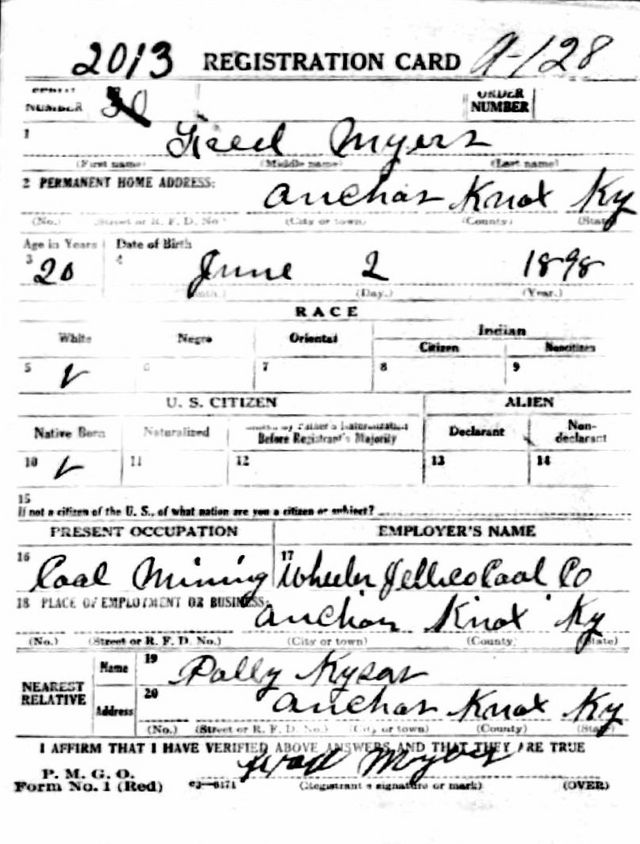 2013 REGISTRATION CARD A-128
SERIAL NUMBER 30 ORDER NUMBER
1 Freed Myers
(First name) (Middle name) (Last name)
2 PERMANENT HOME ADDRESS: Anchor Knox Ky
(No.) (Street or R. F. D. No.) (City or town) (County) (State)
Age in Years Date of Birth
3 20 4 June 2 1898
(Month.) (Day.) (Year.)
RACE
White Negro Oriental Indian
Citizen Noncitizen
5 ✓ 6 7 8 9
U. S. CITIZEN ALIEN
Native Born Naturalized Citizen by Father's Naturalization Before Registrant's Majority Declarant Non-declarant
10 ✓ 11 12 13 14
15
If not a citizen of the U. S., of what nation are you a citizen or subject?
PRESENT OCCUPATION EMPLOYER'S NAME
16 Coal Mining 17 Wheeler Jellico Coal Co
18 PLACE OF EMPLOYMENT OR BUSINESS: Anchor Knox Ky
(No.) (Street or R. F. D. No.) (City or town) (County) (State)
NEAREST RELATIVE Name 19 Polly
Address 20 Anchor Knox Ky
(No.) (Street or R. F. D. No.) (City or town) (County) (State)
I AFFIRM THAT I HAVE VERIFIED ABOVE ANSWERS AND THAT THEY ARE TRUE
P. M. G. O. Myers
Form No. 1 (Red) 03—6171 (Registrant's signature or mark) (OVER)